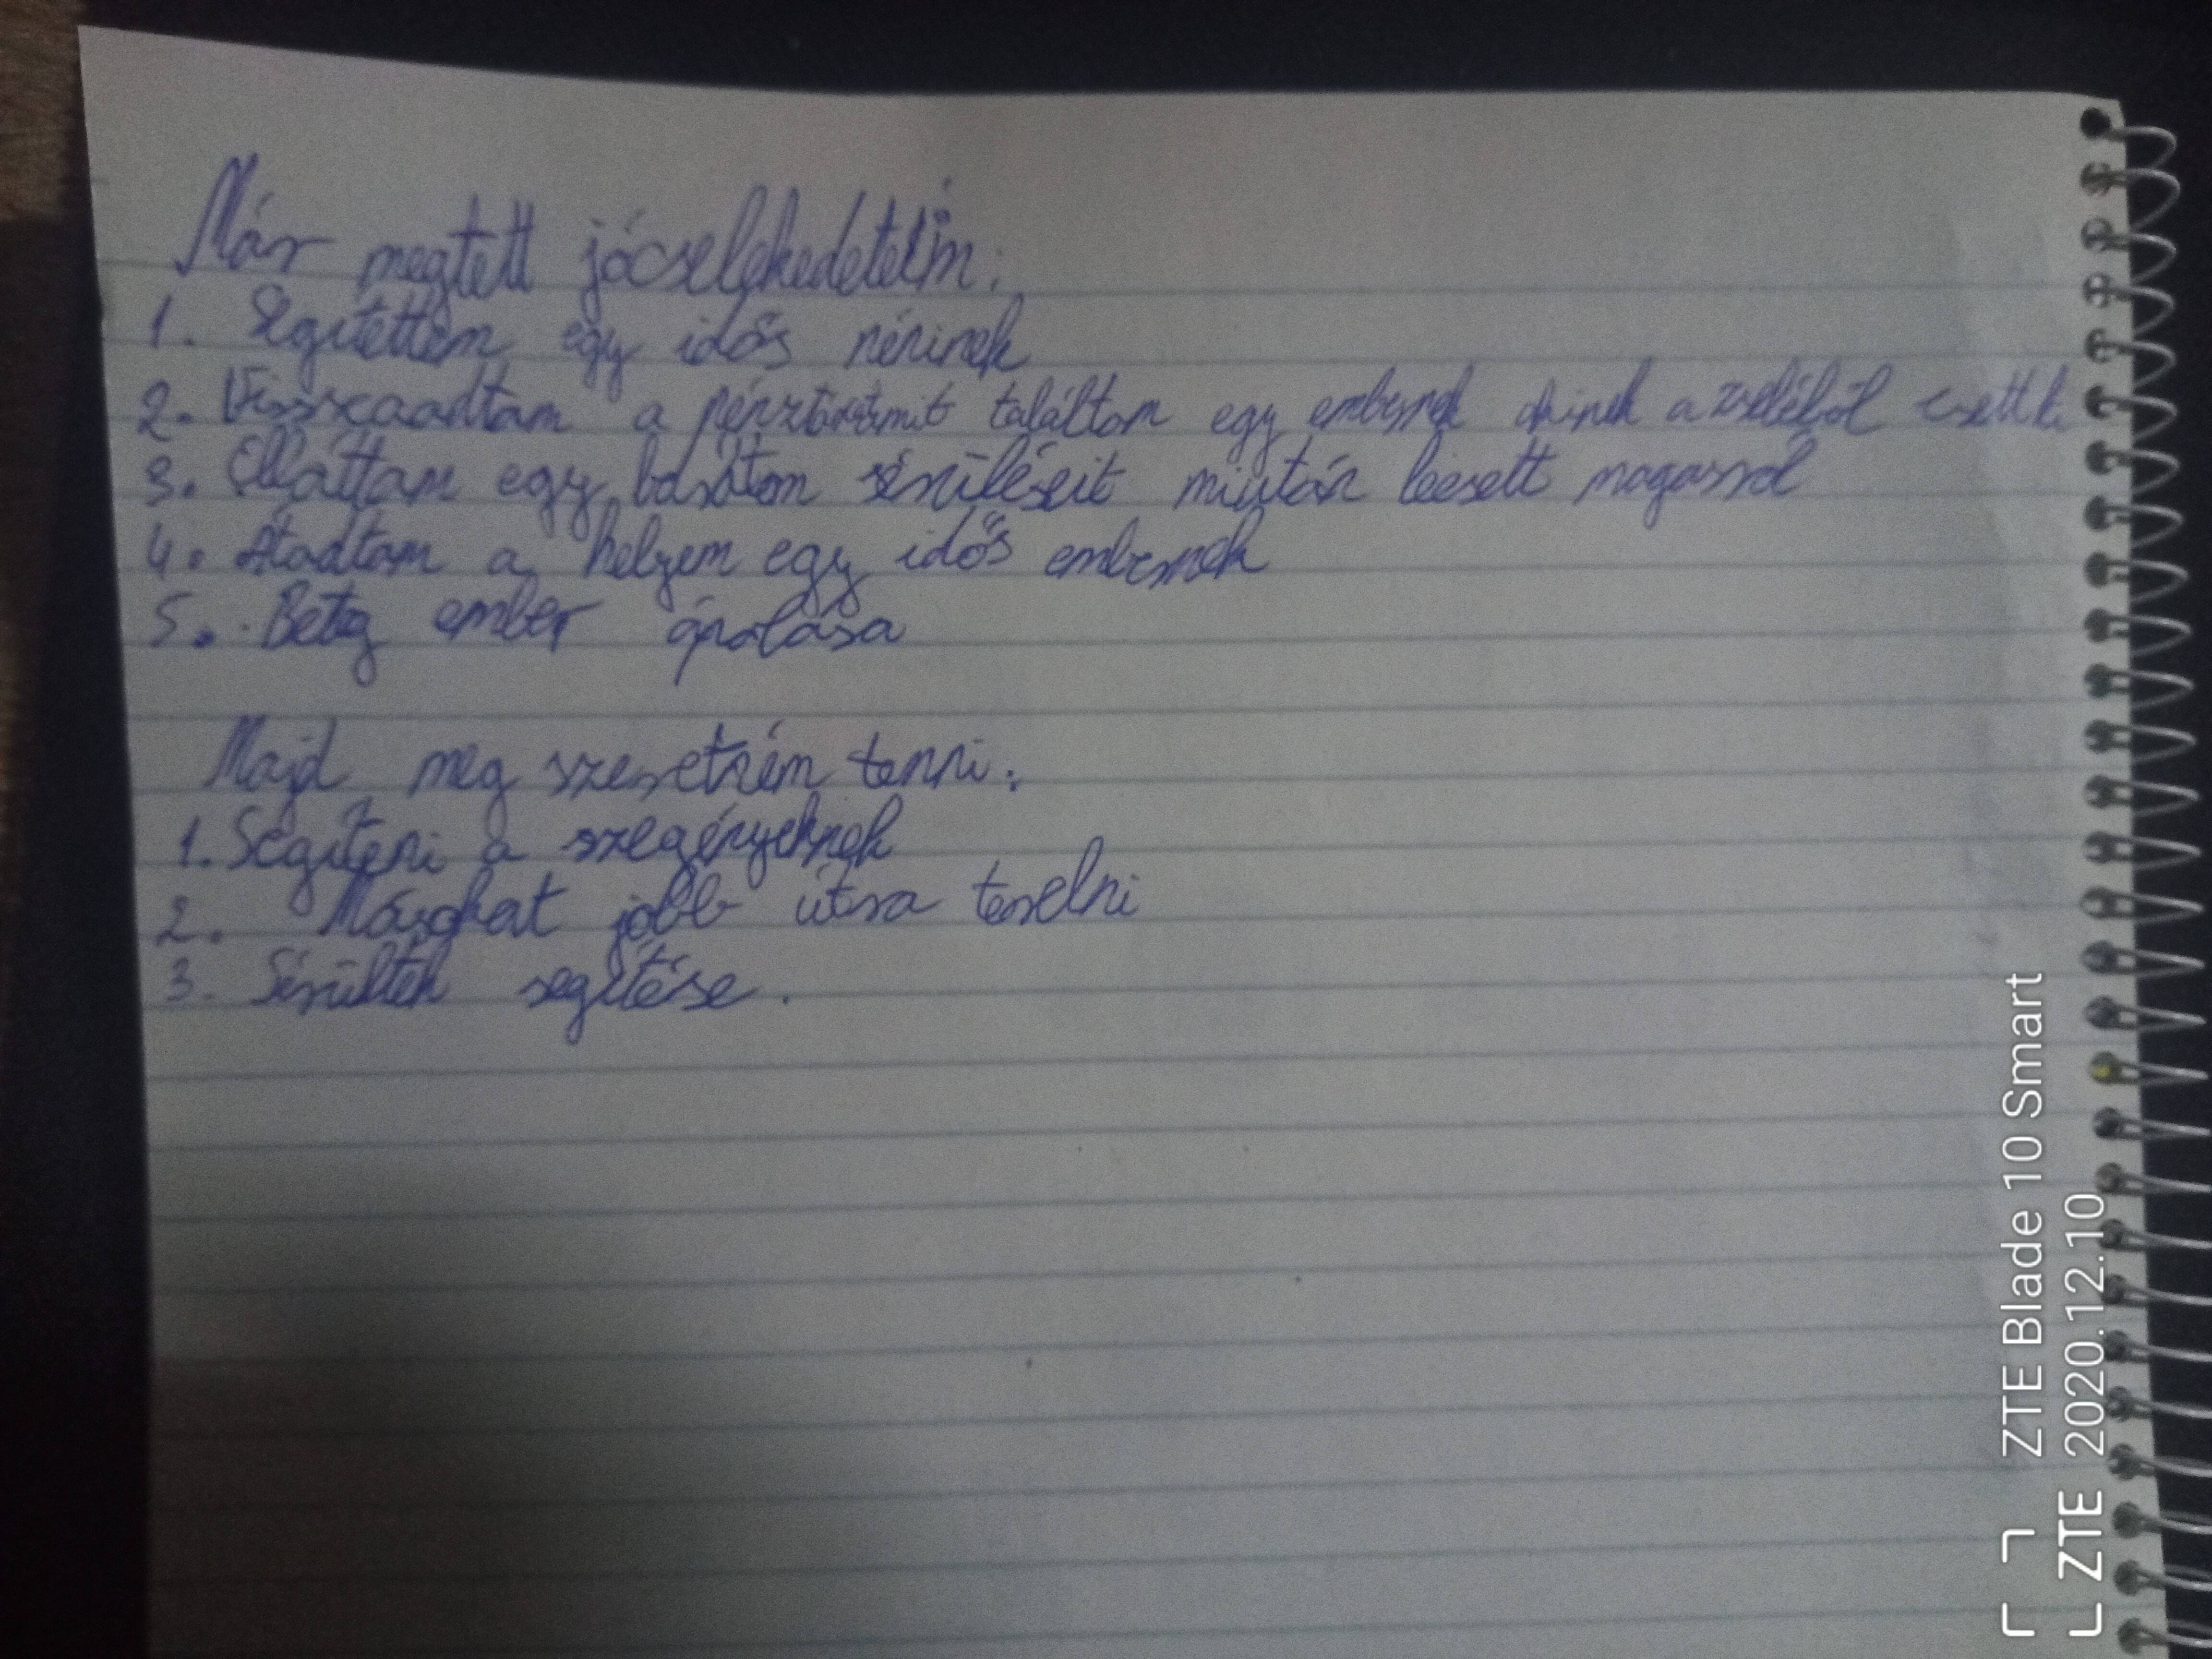 Már megtett jócselekedeteim:
1. Segítettem egy idős néninek
2. Visszaadtam a pénztárcámit találtam egy embernek akinek a zsebéből esett ki
3. Elláttam egy barátom sérüléseit miután leesett magasról
4. Átadtam a helyem egy idős embernek
5. Beteg ember ápolása
Majd meg szeretném tenni:
1. Segíteni a szegényeknek
2. Másokat jobb útra terelni
3. Sérültek segítése.
ZTE Blade 10 Smart
ZTE 2020.12.10